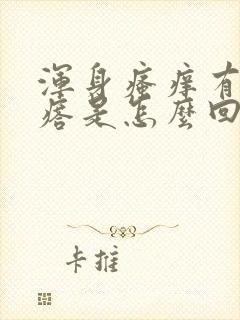 渾身瘙癢有
瘩是怎麼回
卡推